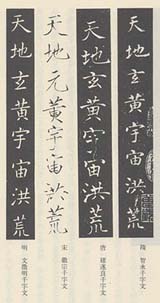 天地玄黃宇宙洪荒
天地玄黃宇宙洪荒
天地元黃宇宙洪荒
天地玄黃宇宙洪荒
隋 智永千字文
唐 褚遂良千字文
宋 徽宗千字文
明 文徵明千字文